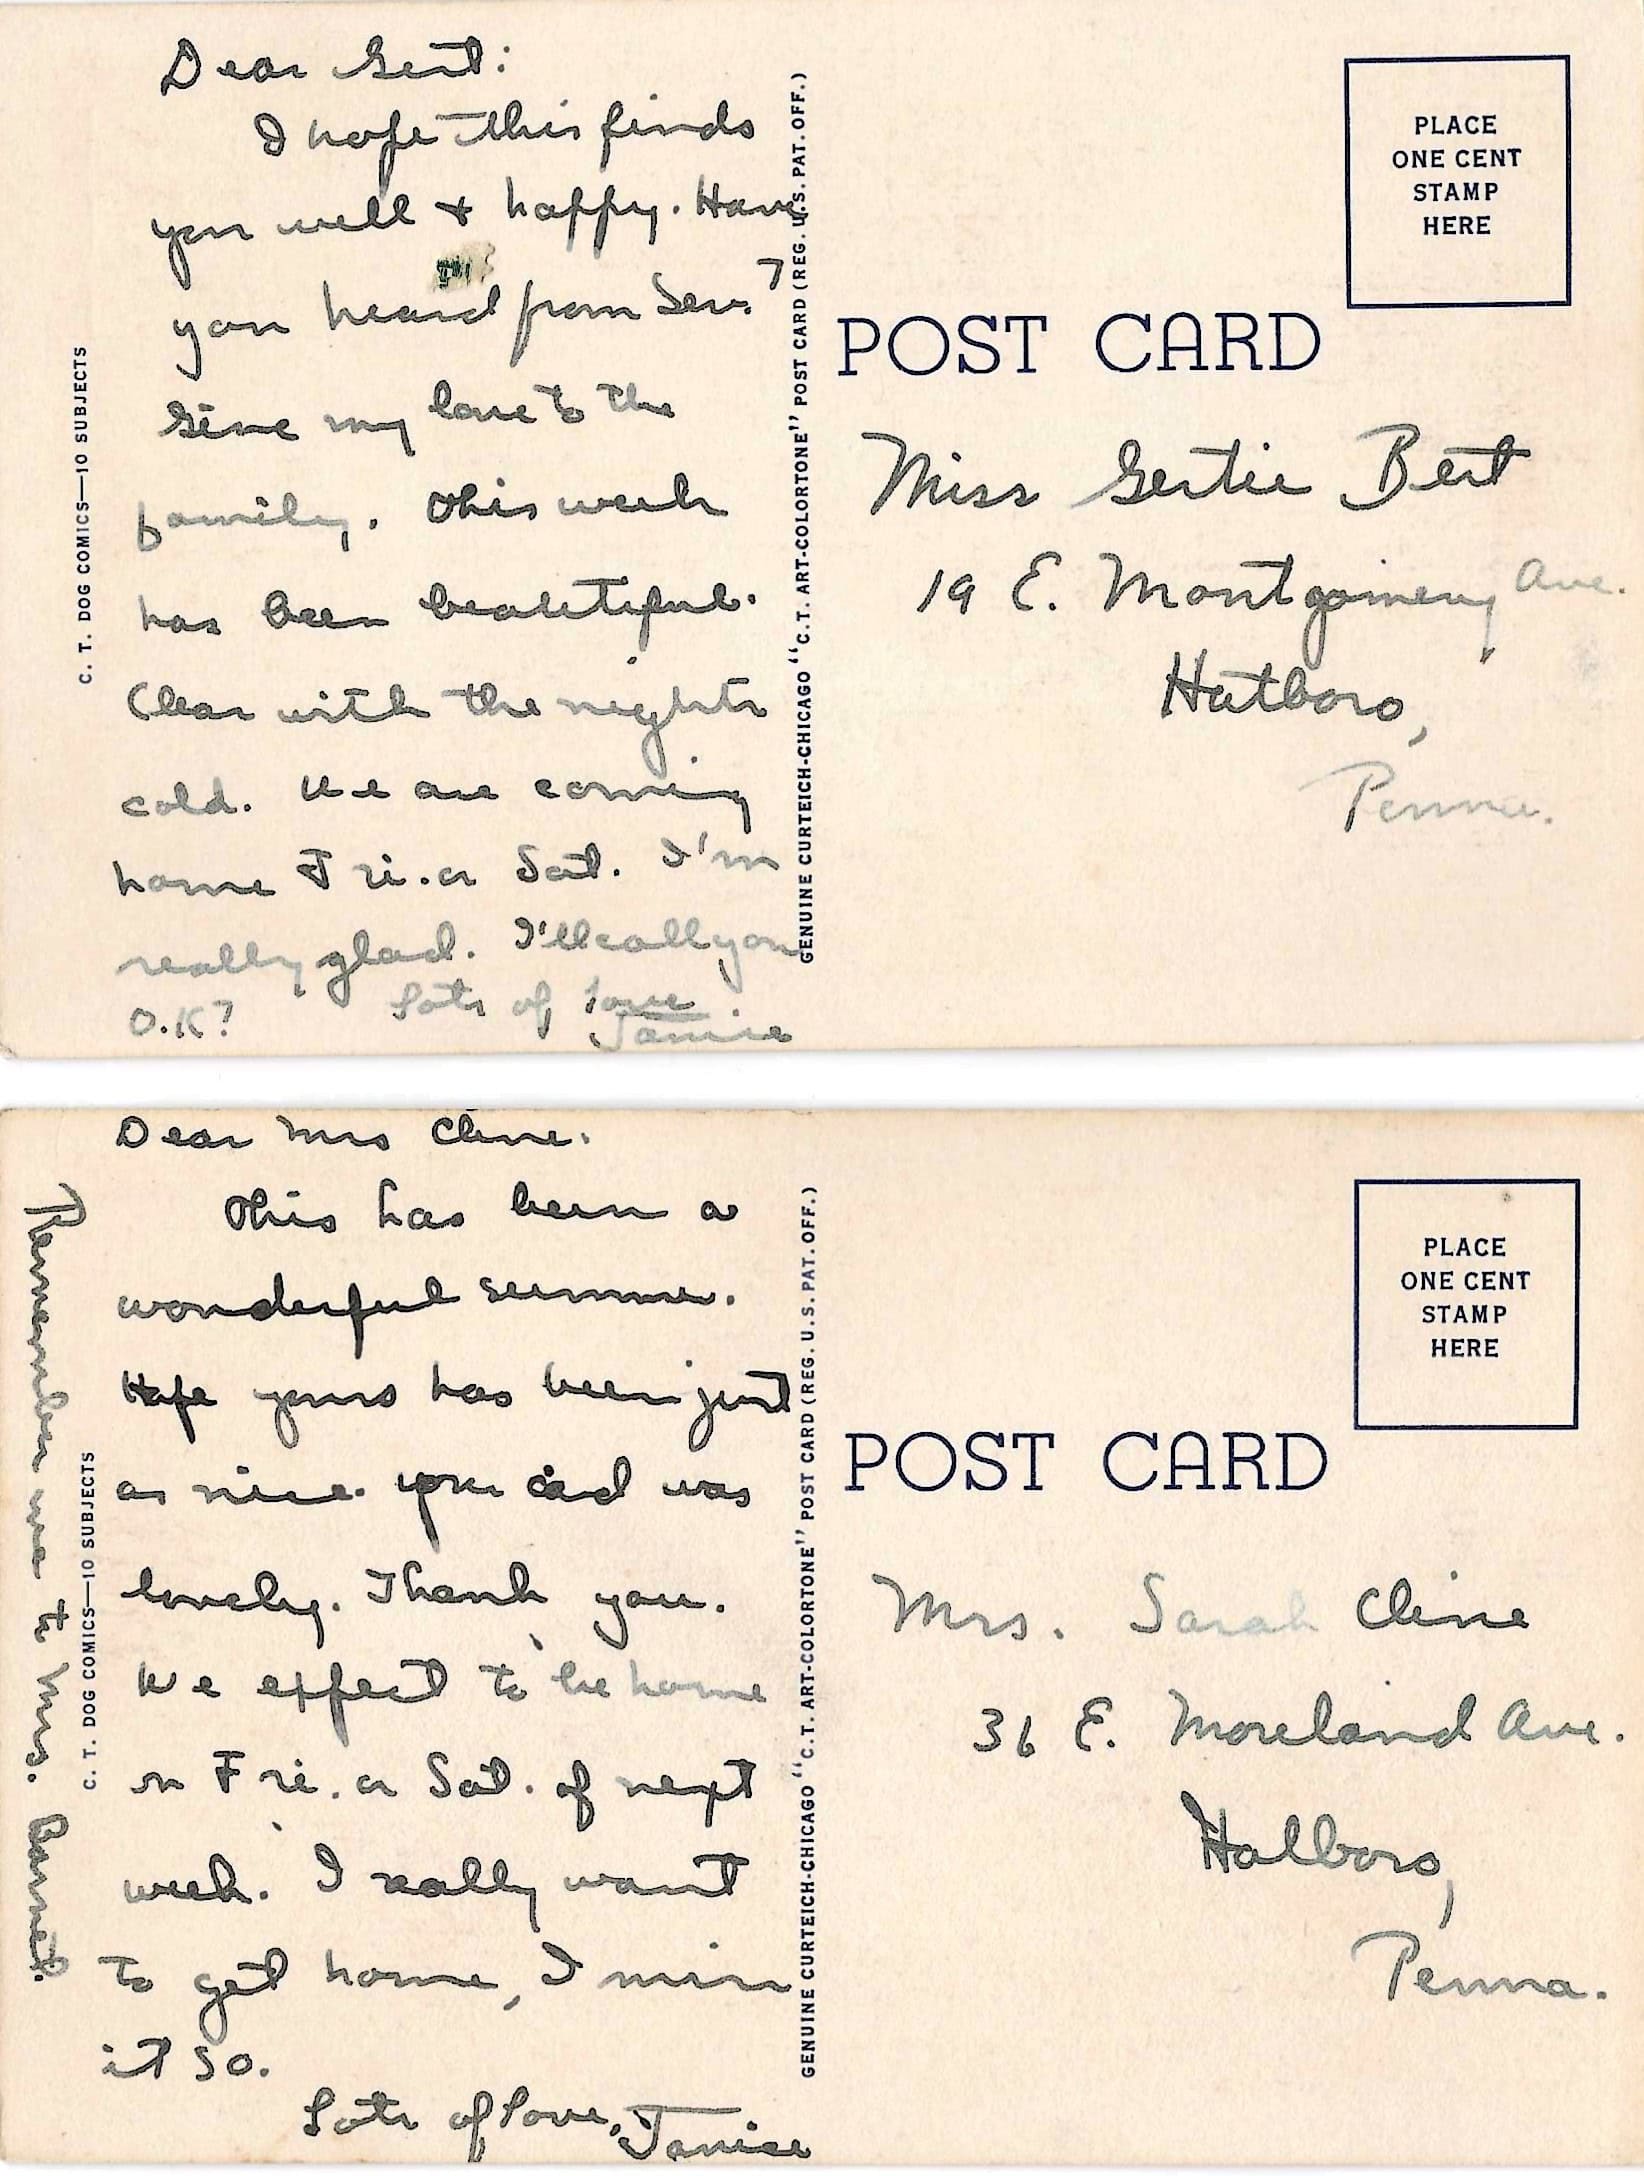 Dear Gert:
I hope this finds
you well + happy. Have
you heard from Serv.?
Give my love to the
family. This week
has been beautiful.
Clear with the nights
cold. We are coming
home Fri. or Sat. I'm
really glad. I'll call you
O.K? Lots of love
Janice
C. T. DOG COMICS—10 SUBJECTS
GENUINE CURTEICH-CHICAGO "C.T. ART-COLORTONE" POST CARD (REG. U.S. PAT. OFF.)
PLACE
ONE CENT
STAMP
HERE
POST CARD
Miss Gertie Bert
19 E. Montgomery Ave.
Hatboro,
Penna.
Dear Mrs Cline.
This has been a
wonderful summer.
Hope yours has been just
as nice. your card was
lovely. Thank you.
We expect to be home
on Fri. or Sat. of next
week. I really want
to get home, I miss
it so.
Lots of love, Janice
Remember me to Mrs.
C. T. DOG COMICS—10 SUBJECTS
GENUINE CURTEICH-CHICAGO "C.T. ART-COLORTONE" POST CARD (REG. U.S. PAT. OFF.)
PLACE
ONE CENT
STAMP
HERE
POST CARD
Mrs. Sarah Cline
36 E. Moreland Ave.
Hatboro,
Penna.